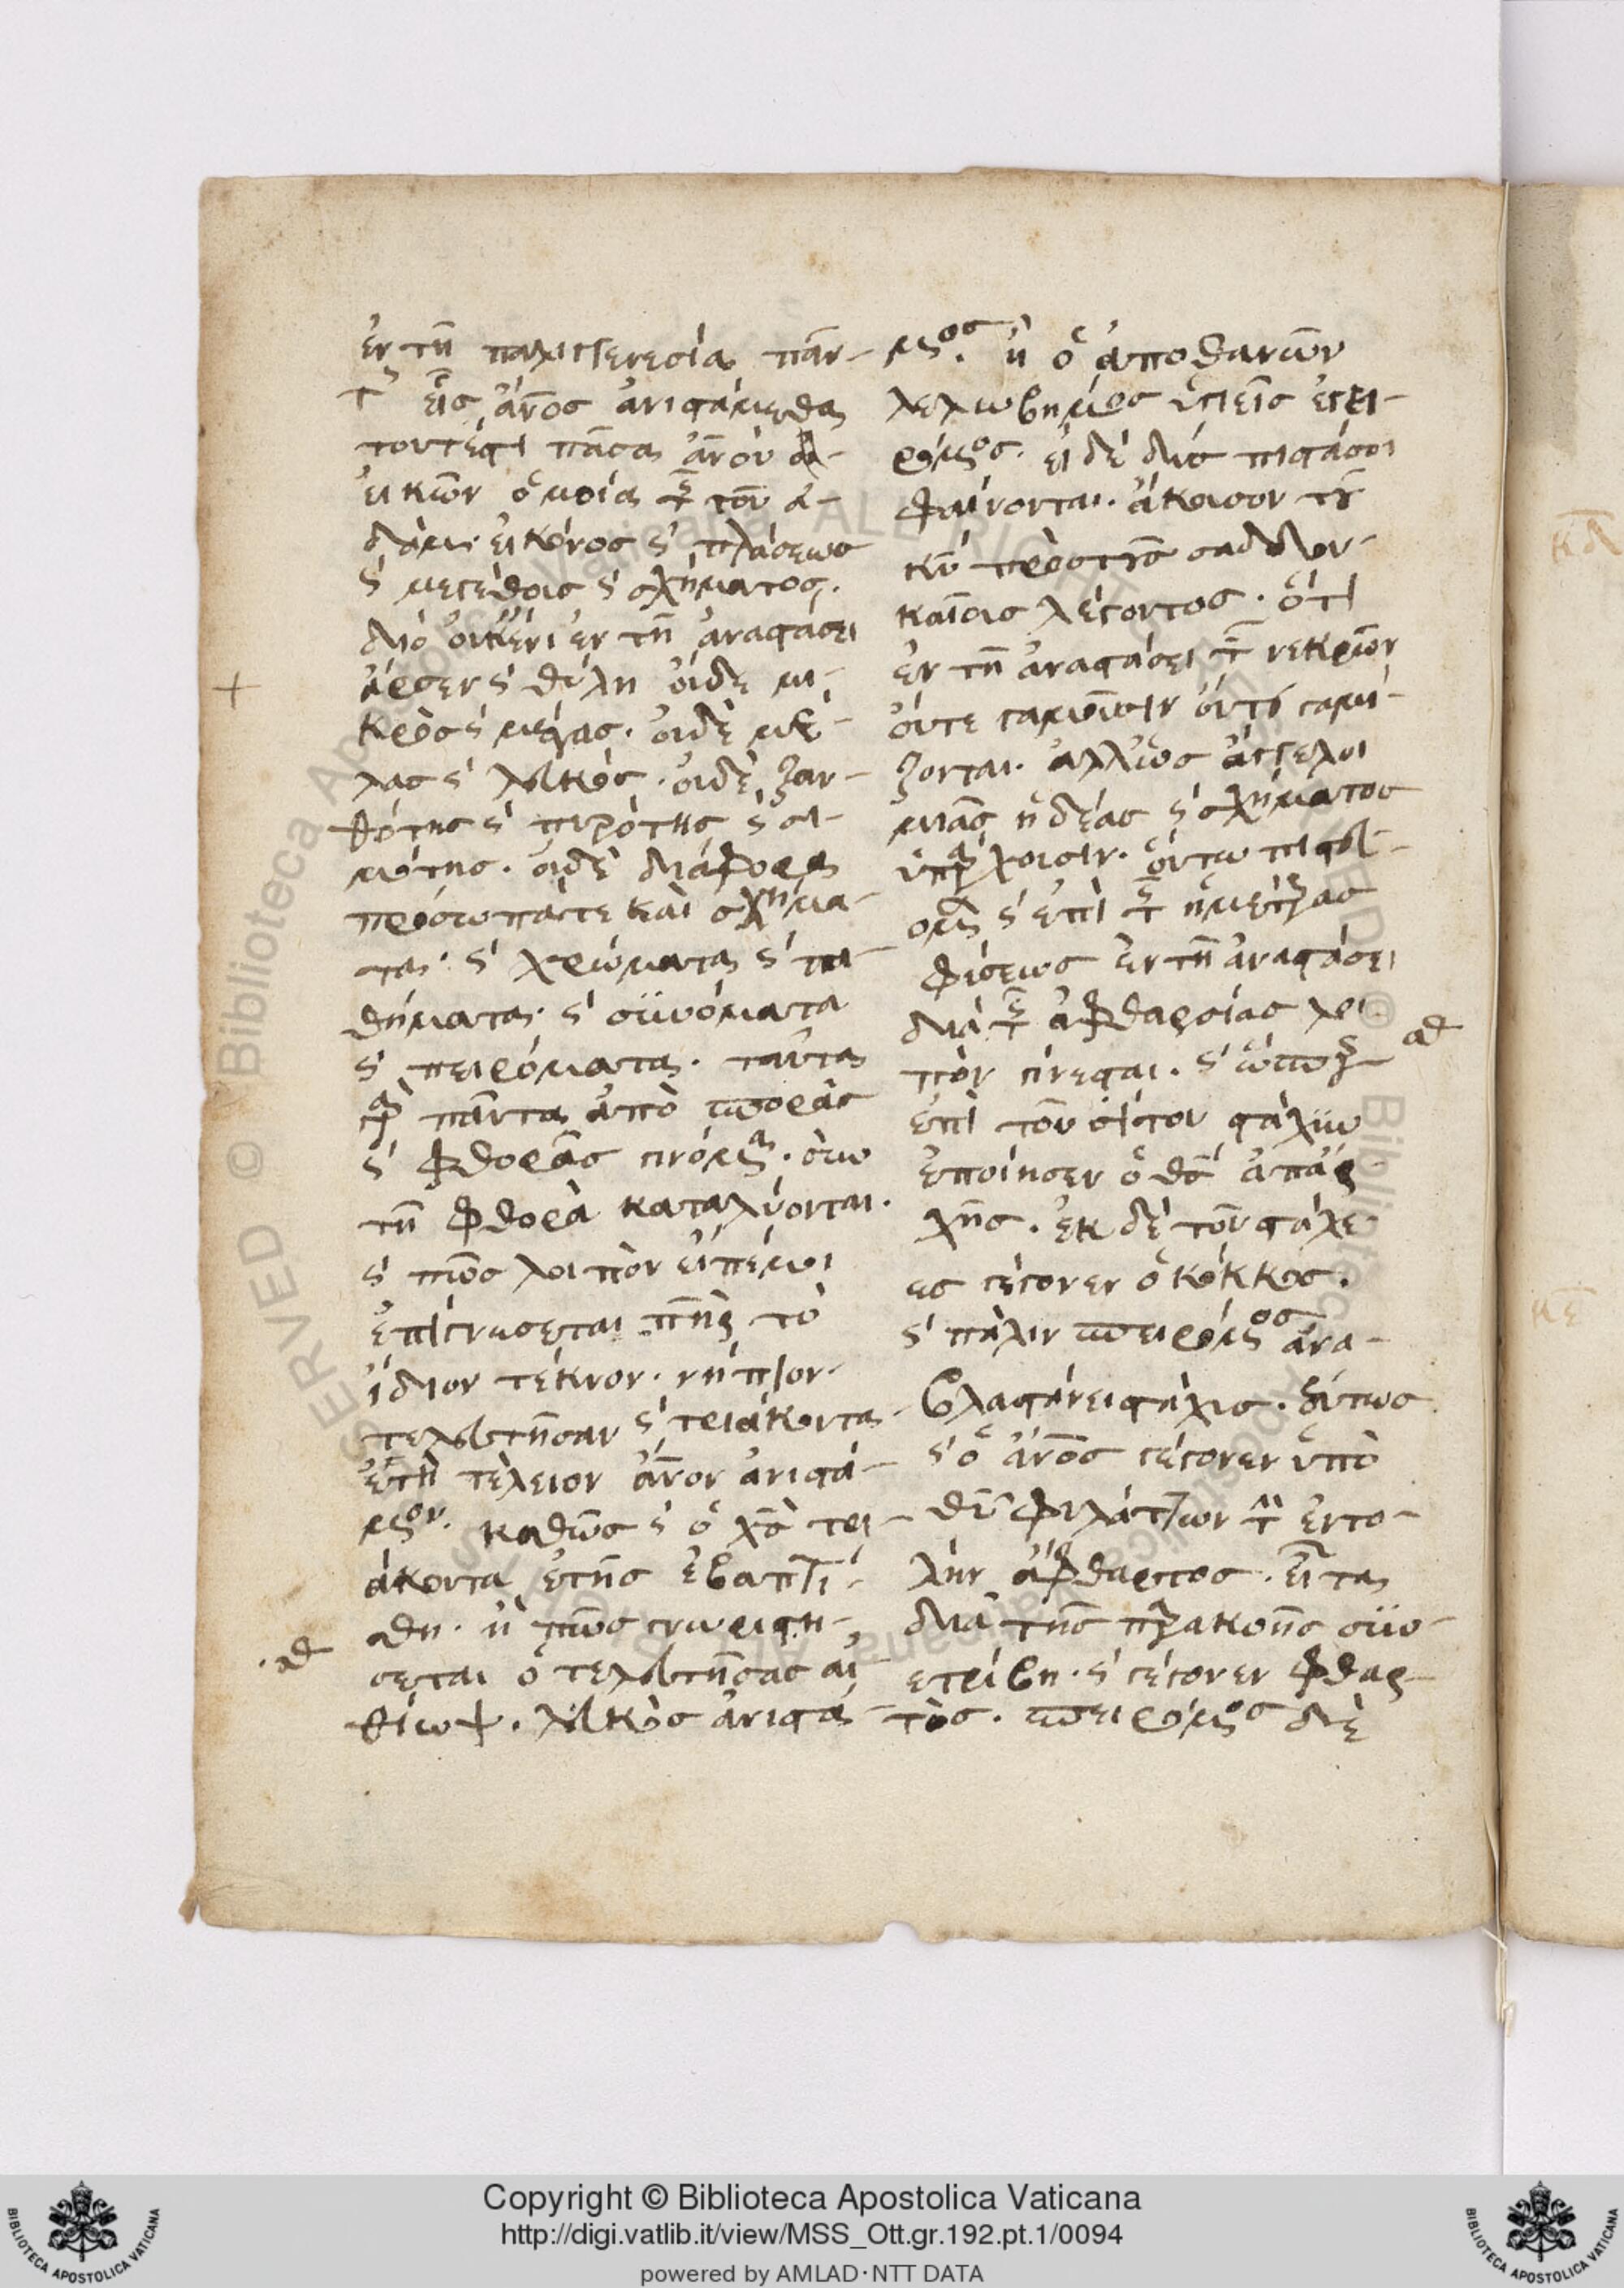 ἐν τῆ παλιγγενεσία πάν-
τ(ες) εἷς ἄνος ἀνιστάμεθα
τουτέστι πᾶσα ἀνου
εἰκὼν ὁμοία τῆς τοῦ ἀ-
δὰμ. εἰκόνος ς πλάσεως
ς μεγέθους ς σχήματος.
διὸ οὐκ ἔνι ἐν τῆ ἀναστάσει
ἄρσεν ς θύλη οὐδὲ μι-
κρὸς ς μέγας. οὐδὲ μέ-
λας ς λευκός. οὐδὲ ξαν-
θότης ς πυρότης ς σι-
μότης. οὐδὲ διάφορα
πρόσωπάτε καὶ σχήμα-
τα. ς χρώματα ς πα-
θήματα. ς
ς πειρόματα. ταῦτα
γὰρ πάντα ἀπὸ σπορᾶς
ς φθορᾶς γινόμενα. σὺν
τῆ φθορὰ καταλύονται.
ς πῶς λοιπὸν εἰπέμοι
ἐπιγνώσεται πηρ τὸ
ἴδιον τέκνον. νήπιον
τελευτῆσαν ς τριάκοντα
ἔτη τέλειον ἄνον ἀνιστά-
μενον. καθὼς ς ὁ χς τρι-
άκοντα ἐτης ἐβαπτί-
σθη. ἢ πῶς γνωρισθή-
σεται ὁ τελευτήσας αἰ-
θίωψ. λευκὸς ἀνιστά-
μενος. ἢ ὁ ἀποθανὼν
λελωβημένος ὑγιεὶς ἐγει-
ρόμενος. εἰ δὲ δυσπιστά σοι
φαίνονται. ἄκουσον τοῦ
κυ πρὸς τοὺς σαδδου-
καίους λέγοντος. ὅτι
ἐν τῆ ἀναστάσει τῶν νεκρῶν
οὔτε γαμοῦσιν οὔτε γαμί-
ζονται. ἀλλ' ὡς ἄγγελοι
μιᾶς ἠδέας ς σχήματος
ὑπάρχουσιν. οὕτω πιστεύ-
ομεν ς ἐπὶ τῆς ἡμετέρας
φύσεως ἐν τῆ ἀναστάσει
διὰ τῆς ἀφθαρσίας λοι
πὸν γίνεσται. ς ὥσπερ
ἐπὶ τοῦ σίτου στάχυν
ἐποίησεν ὁ θς ἀπάρ
χῆς. ἐκ δὲ τοῦ στάχυ
ος γέγονεν ὁ κόκκος.
ς πάλιν σπειρόμενος ἀνα-
βλαστάνει στάχυς. οὕτως
ς ὁ ἄνος γέγονεν ὑπὸ
θυ φυλάττων τὴν ἐντο-
λὴν ἄφθαρτος. εἶτα
διὰ τῆς παρακοῆς συν-
ετρίβη. ς γέγονεν φθαρ-
τὸς. σπειρόμενος δὲ
Copyright © Biblioteca Apostolica Vaticana
http://digi.vatlib.it/view/MSS_Ott.gr.192.pt.1/0094
powered by AMLAD·NTT DATA